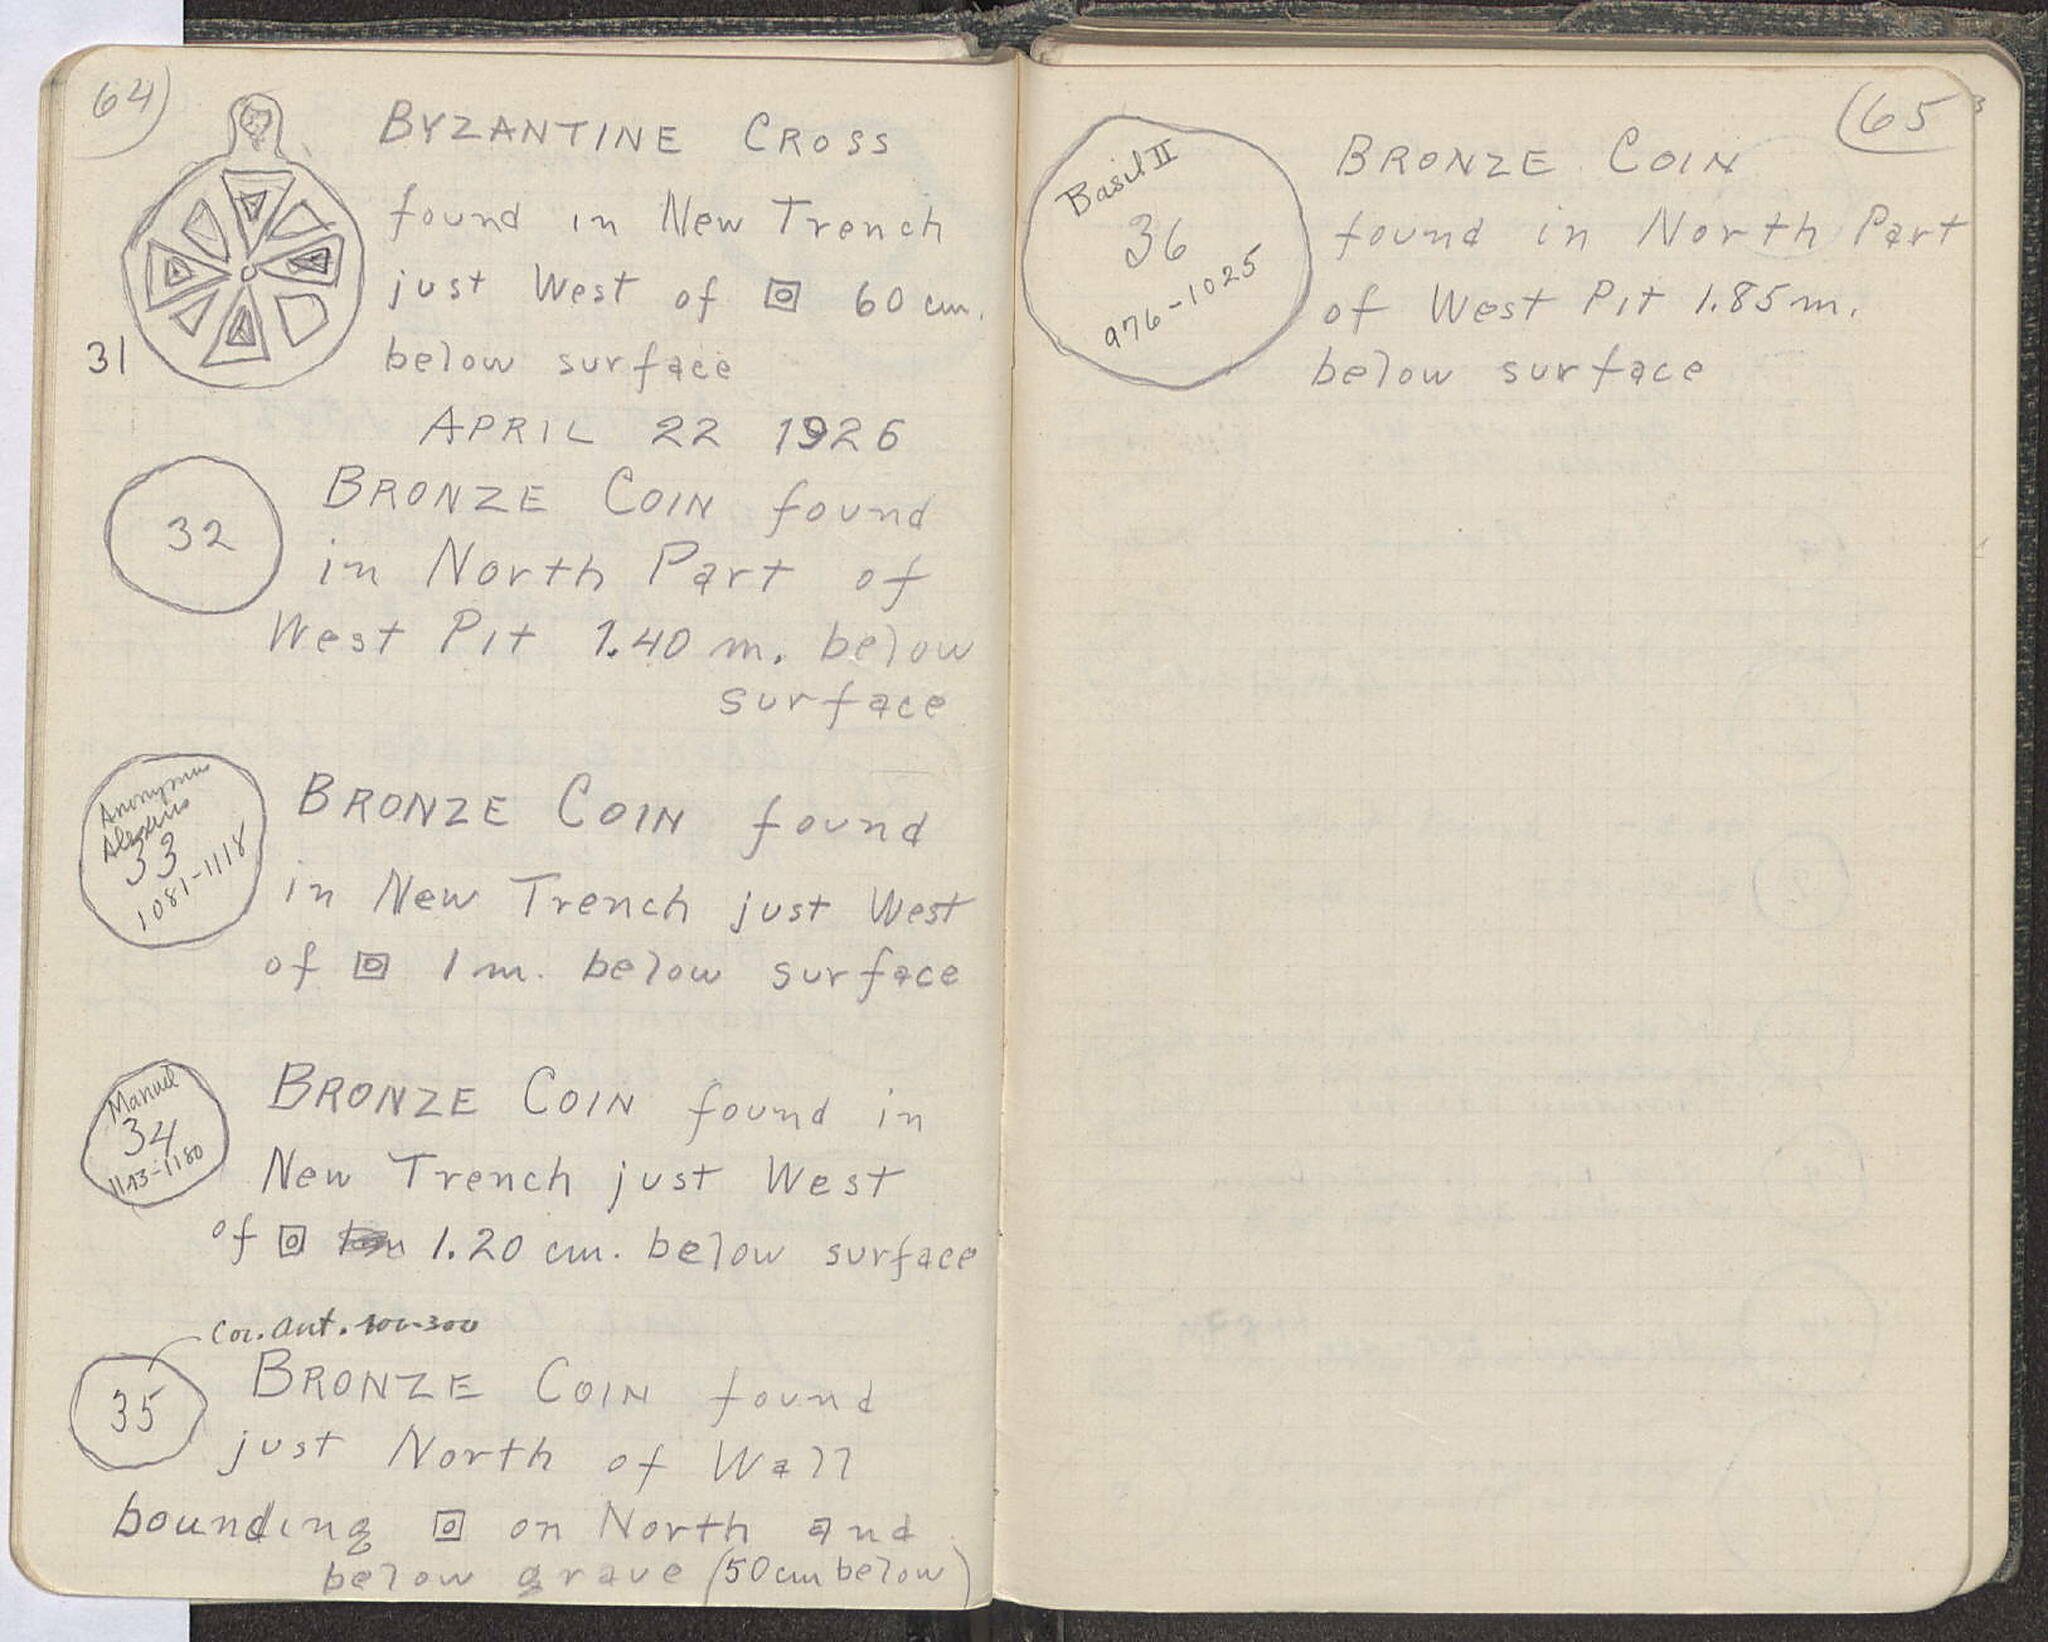 64
BYZANTINE CROSS
found in New Trench
just West of 60 cm.
below surface
31
APRIL 22 1926
32
BRONZE COIN found
in North Part of
West Pit 1.40 m. below
surface
Anonymus
Alexius
33
1081-1118
BRONZE COIN found
in New Trench just West
of 1 m. below surface
Manuel
34
1143-1180
BRONZE COIN found in
New Trench just West
of 1.20 cm. below surface
Cor. Ant.
35
BRONZE COIN found
just North of Wall
bounding on North and
below grave (50 cm below)
65
Basil II
36
976-1025
BRONZE COIN
found in North Part
of West Pit 1.85 m.
below surface